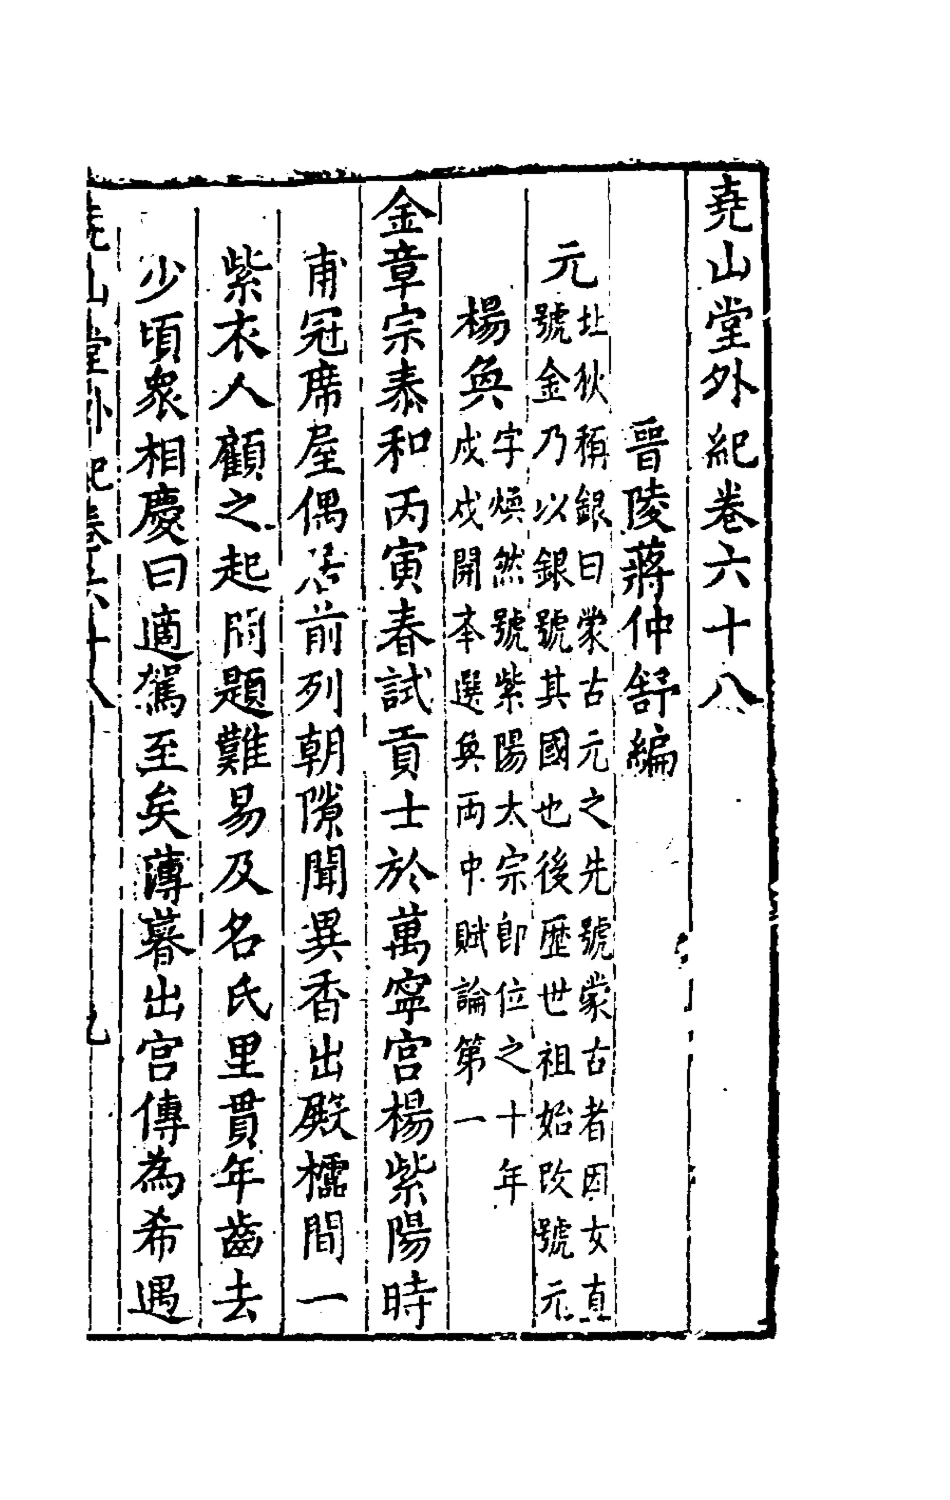 堯山堂外紀卷六十八
晉陵蔣仲舒編
元
北狄稱銀曰蒙古元之先號蒙古者因女直
號金乃以銀號其國也後歷世祖始改號元
楊奐
字煥然號紫陽太宗即位之十年
戊戌開夲選奐兩中賦論第一
金章宗泰和丙寅春試貢士於萬寧宮楊紫陽時
甫冠席屋偶居前列朝隙聞異香出殿櫺間一
紫衣人顧之起問題難易及名氏里貫年齒去
少頃衆相慶曰適駕至矣薄暮出宮傳為希遇
堯山堂外紀卷六十八